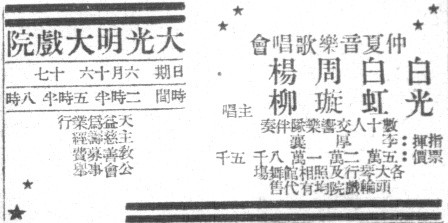 仲夏音樂歌唱會
白光
白虹
周璇
楊柳
主唱
數十人交響樂隊伴奏
指揮：李厚襄
票價：五萬 二萬 一萬 八千 五千
各大琴行及照相館舞場
頭輪戲院均有代售
大光明大戲院
日期 六月十六 十七
時間 二時半 五時半 八時
天主教公
益會
為慈善事
業籌募經費舉
行